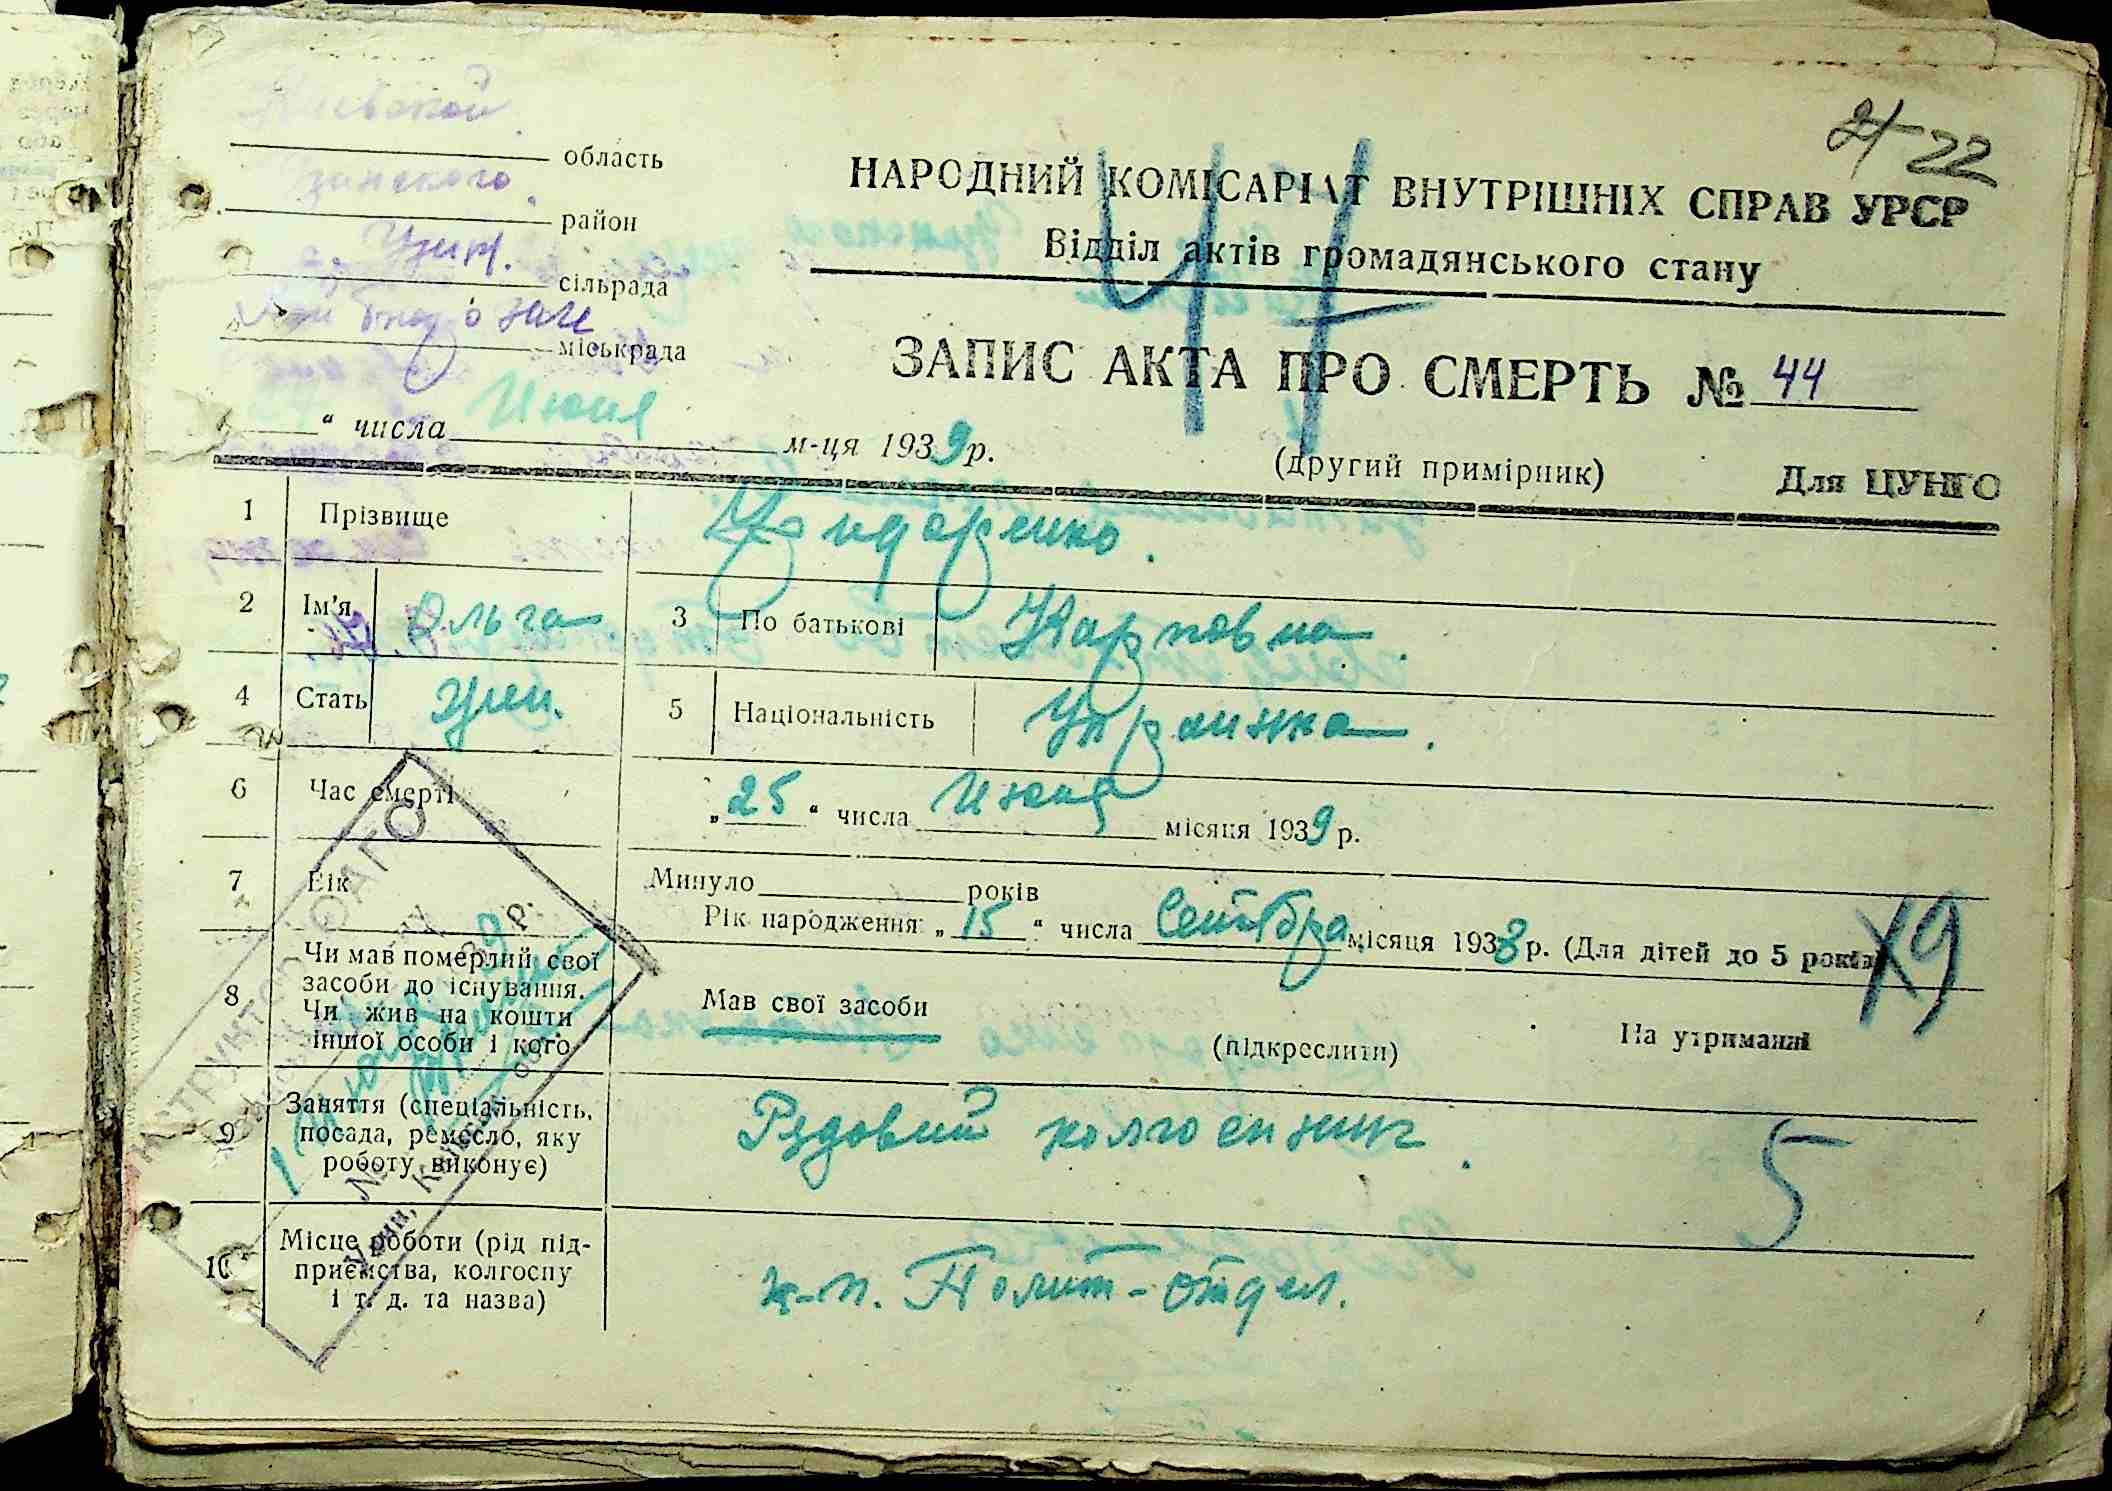 21 22
Киевской
область
Узинского
район
с. Узин.
сільрада
міськрада
НАРОДНИЙ КОМІСАРІАТ ВНУТРІШНІХ СПРАВ УРСР
Відділ актів громадянського стану
ЗАПИС АКТА ПРО СМЕРТЬ № 44
“ числа Июня м-ця 1939 р.
(другий примірник) Для ЦУНГО
1 Прізвище
2 Ім'я Ольга 3 По батькові Карповна
4 Стать 5 Національність Украинка.
6 Час смерті „25“ числа Июня місяця 1939 р.
7 Вік Минуло років
Рік народження: „15“ числа Сентября місяця 1938 р. (Для дітей до 5 років)
Х9
8 Чи мав померлий свої
засоби до існування.
Чи жив на кошти
іншої особи і кого
Мав свої засоби
(підкреслити)
На утриманні
9 Заняття (спеціальність,
посада, ремесло, яку
роботу виконує)
Рядовий колгоспник.
5
10 Місце роботи (рід під-
приємства, колгоспу
і т. д. та назва)
к-п. Полит-отдел.